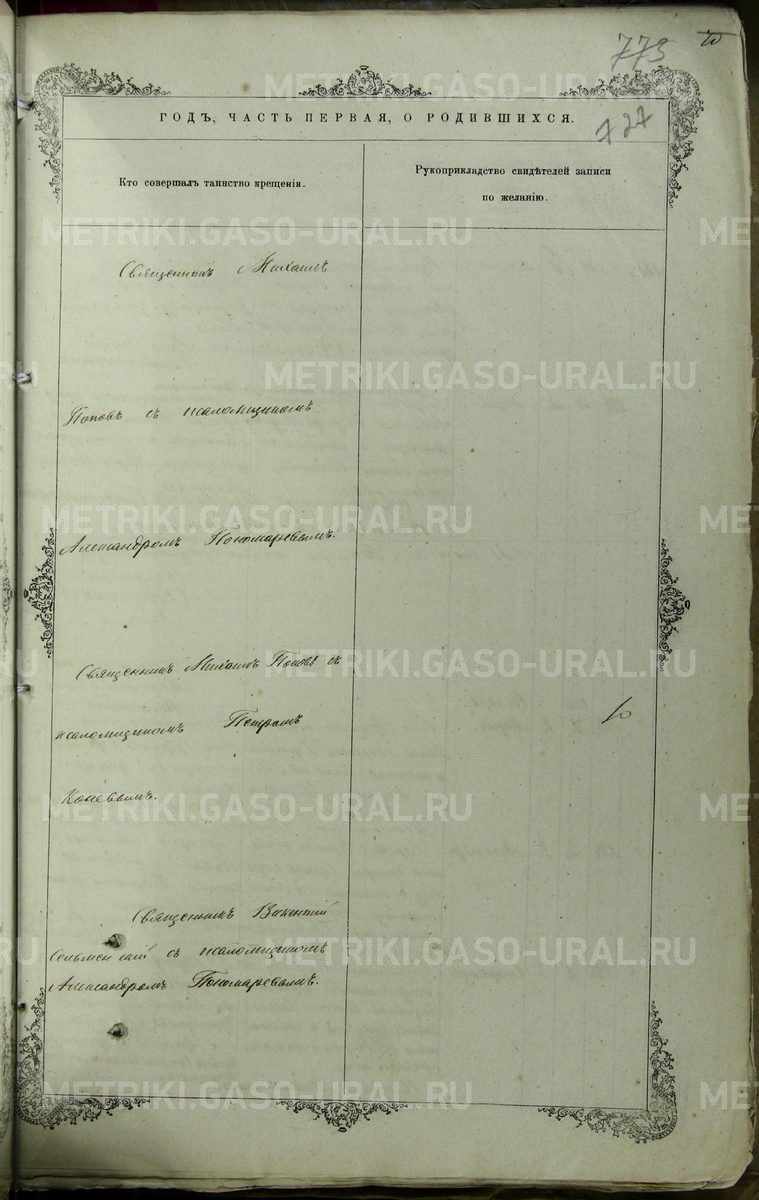 773
727
ГОДЪ, ЧАСТЬ ПЕРВАЯ, О РОДИВШИХСЯ.
Кто совершалъ таинство крещенія.
Рукоприкладство свидѣтелей записи
по желанію.
Священникъ Михаилъ
Поповъ съ псаломщикомъ
Александромъ Пономаревымъ.
Священникъ Михаилъ Поповъ съ
псаломщикомъ Петромъ
Коневымъ.
Священникъ Викентій
съ псаломщикомъ
Александромъ Пономаревымъ.
METRIKI.GASO-URAL.RU